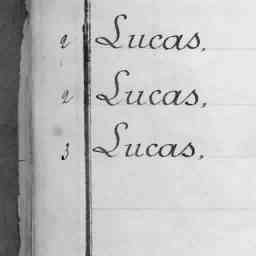 2 Lucas,
2 Lucas,
3 Lucas,